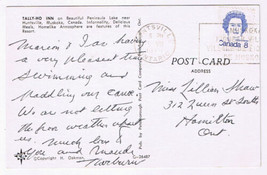 TALLY-HO INN on Beautiful Peninsula Lake near
Huntsville, Muskoka, Canada. Informality, Delicious
Meals, Homelike Atmosphere are features of this
Resort.
Marion & I are having
a very pleasant time
Swimming and
paddling our canoe.
We are not letting
the poor weather upset
us. Much love to
you and
©Copyright N.
POST CARD
ADDRESS
Canada 8
Miss Lillian Shaw
312 Queen St. South
Hamilton
Ont.